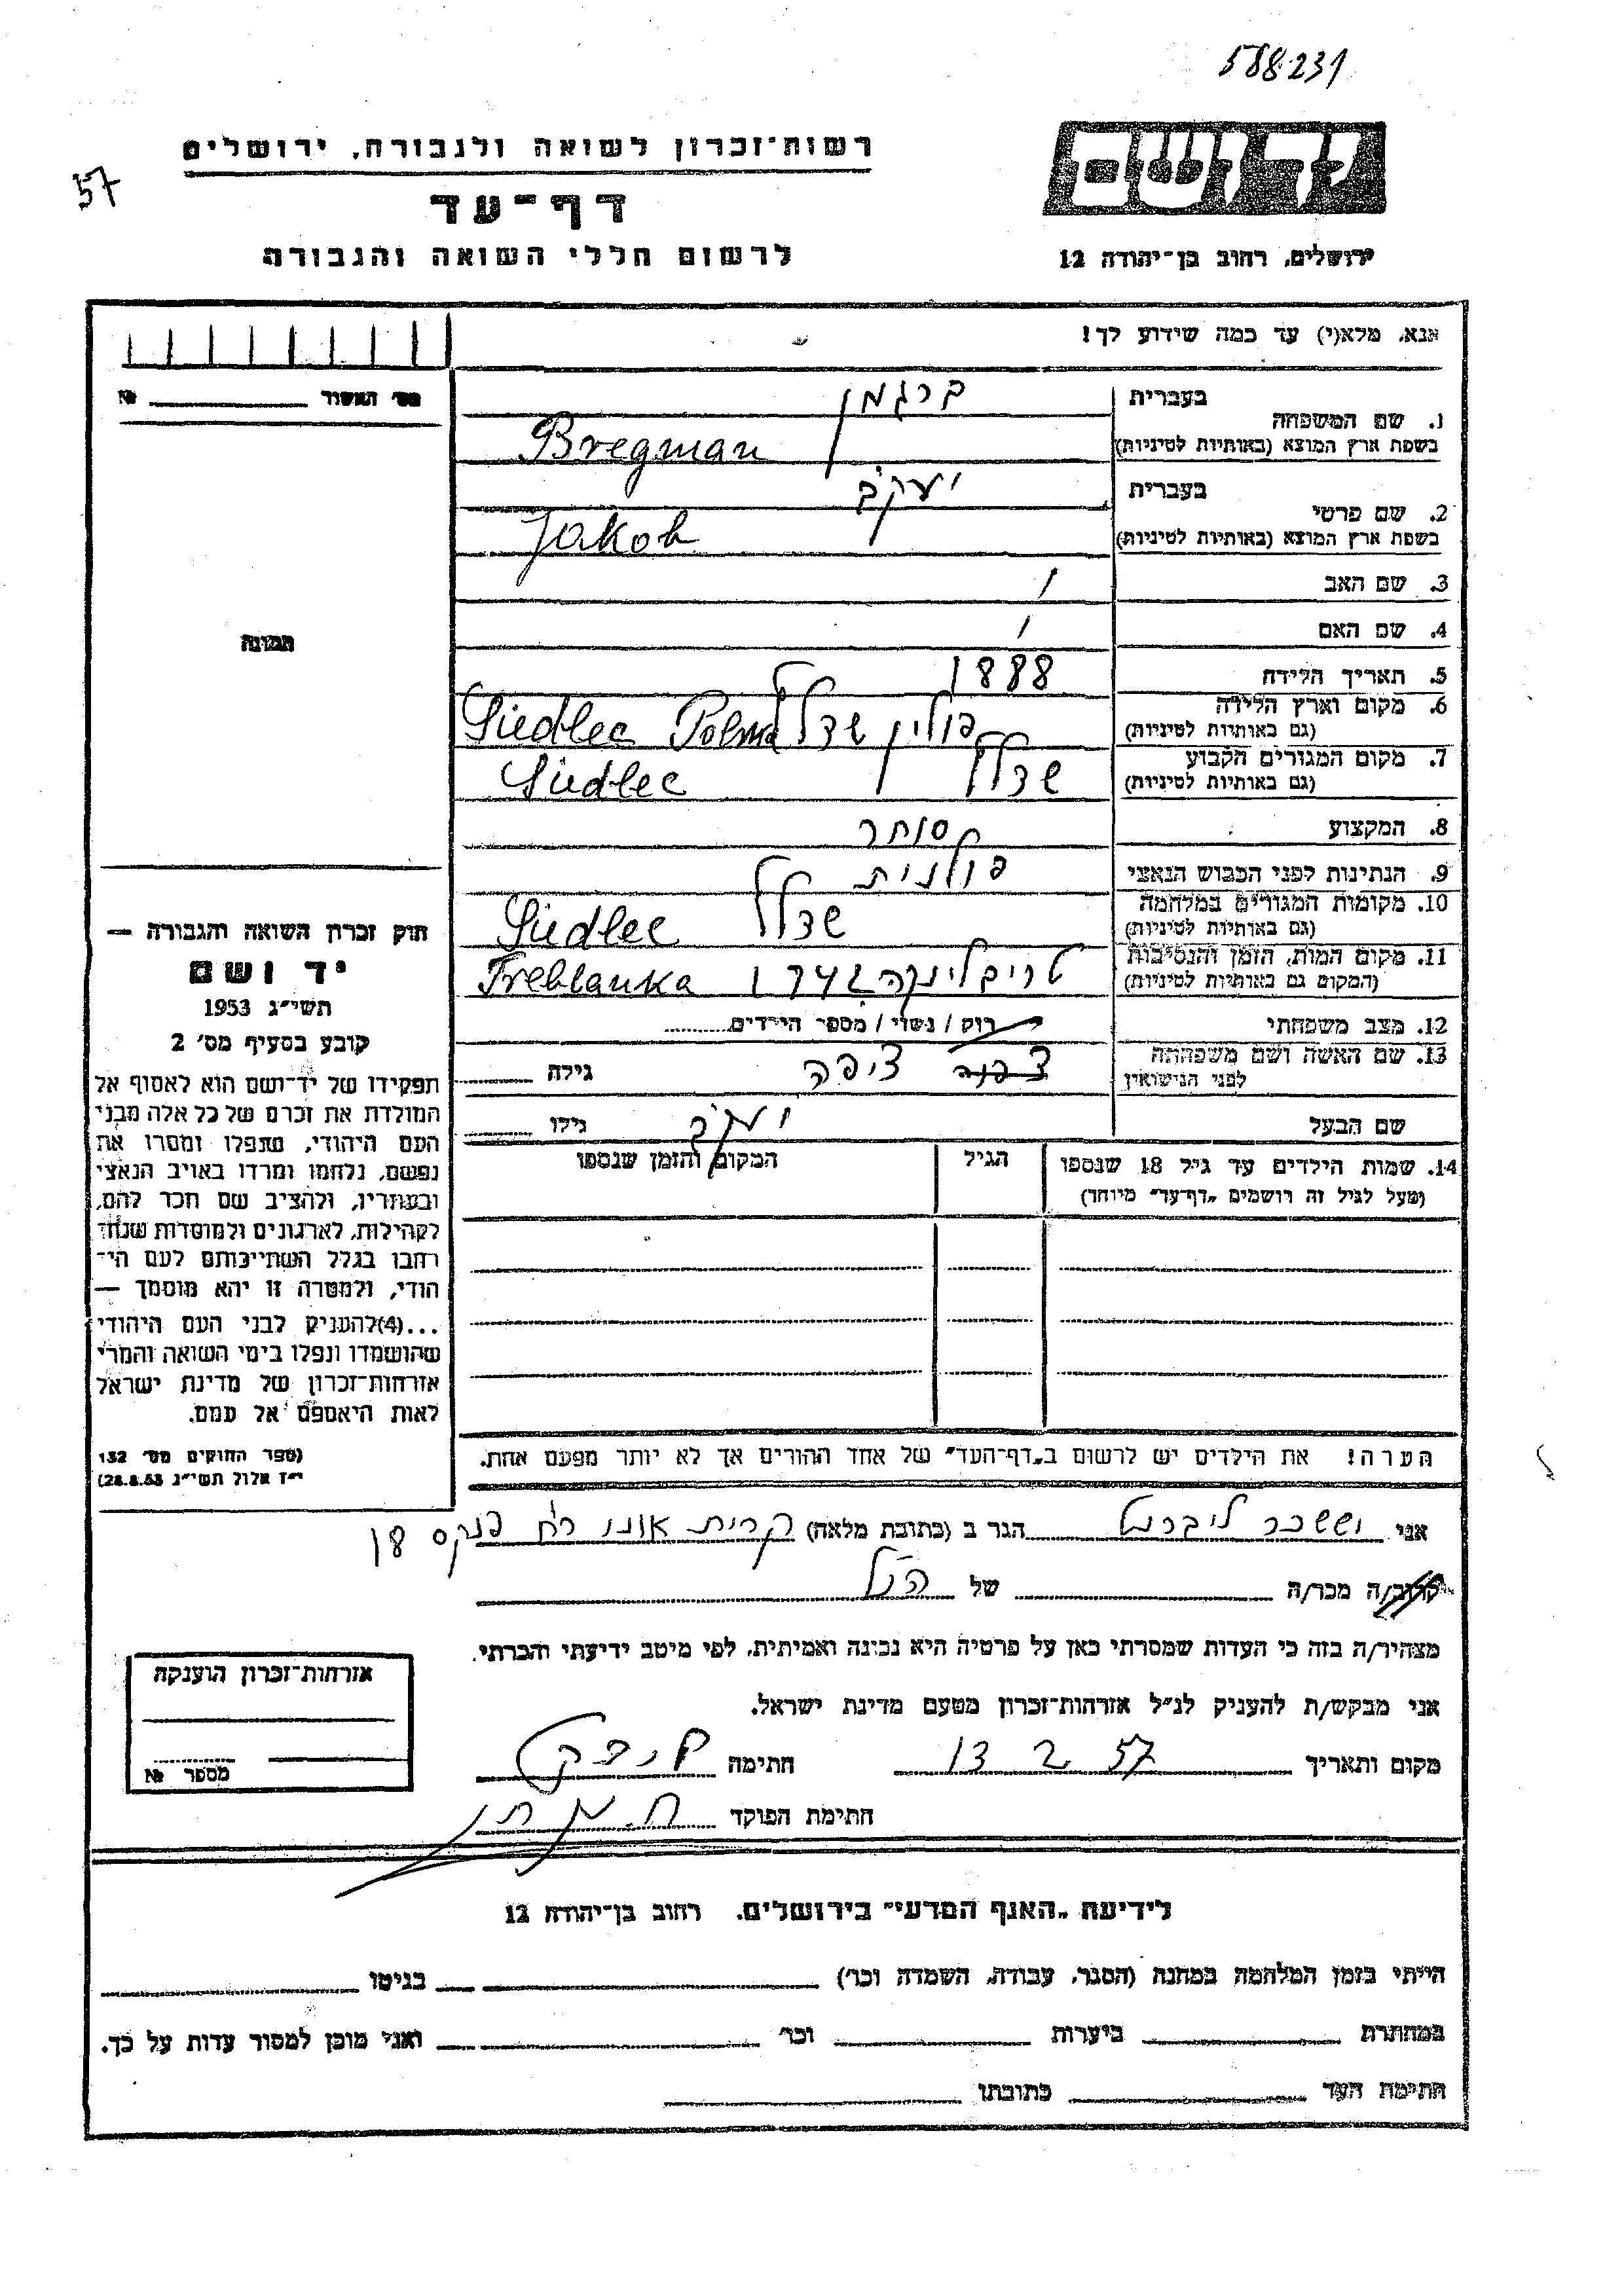 588231
57
יד ושם
ירושלים, רחוב בן־יהודה 12
רשות־זכרון לשואה ולגבורה, ירושלים
דף־עד
לרשום חללי השואה והגבורה
אנא, מלא(י) עד כמה שידוע לך!
מס׳ האשור № 
תמונה
בעברית ברגמן
1. שם המשפחה
בשפת ארץ המוצא (באותיות לטיניות) Bregman
בעברית יעקב
2. שם פרטי
בשפת ארץ המוצא (באותיות לטיניות) Jakob
3. שם האב /
4. שם האם /
5. תאריך הלידה 1888
6. מקום וארץ הלידה
(גם באותיות לטיניות) פולין שדלץ Siedlec
7. מקום המגורים הקבוע
(גם באותיות לטיניות) שדלץ Siedlec
8. המקצוע סוחר
9. הנתינות לפני הכבוש הנאצי פולנית
10. מקומות המגורים במלחמה
(גם באותיות לטיניות) שדלץ Siedlec
11. מקום המות, הזמן והנסיבות
(המקום גם באותיות לטיניות) טריבלינקה 1942 Treblanka
12. מצב משפחתי רווק / נשוי / מספר הילדים
13. שם האשה ושם משפחתה
לפני הנישואין ציפה גילה
שם הבעל גילו
14. שמות הילדים עד גיל 18 שנספו הגיל המקום והזמן שנספו
(מעל לגיל זה רושמים „דף־עד״ מיוחד)
הערה! את הילדים יש לרשום ב„דף־העד״ של אחד ההורים אך לא יותר מפעם אחת.
חוק זכרון השואה והגבורה —
יד ושם
תשי״ג 1953
קובע בסעיף מס׳ 2
תפקידו של יד־ושם הוא לאסוף אל
המולדת את זכרם של כל אלה מבני
העם היהודי, שנפלו ומסרו את
נפשם, נלחמו ומרדו באויב הנאצי
ובעוזריו, ולהציב שם וזכר להם,
לקהילות, לארגונים ולמוסדות שנח־
רבו בגלל השתייכותם לעם הי־
הודי, ולמטרה זו יהא מוסמך —
...(4)להעניק לבני העם היהודי
שהושמדו ונפלו בימי השואה והמרי
אזרחות־זכרון של מדינת ישראל
לאות היאספם אל עמם.
(ספר החוקים מס׳ 132
י״ז אלול תשי״ג 28.8.53)
אני יששכר הגר ב (כתובת מלאה) קרית אונו רח פנקס 18
קרוב/ה מכר/ה של הנ״ל
מצהיר/ה בזה כי העדות שמסרתי כאן על פרטיה היא נכונה ואמיתית, לפי מיטב ידיעתי והכרתי.
אני מבקש/ת להעניק לנ״ל אזרחות־זכרון מטעם מדינת ישראל.
מקום ותאריך 13 2 57 חתימה
חתימת הפוקד
אזרחות־זכרון הוענקה
מספר №
לידיעת „האגף המדעי״ בירושלים, רחוב בן־יהודה 12
הייתי בזמן המלחמה במחנה (הסגר, עבודה, השמדה וכר׳) בגיטו
במחתרת ביערות וכר׳ ואני מוכן למסור עדות על כך.
חתימת העד כתובתו